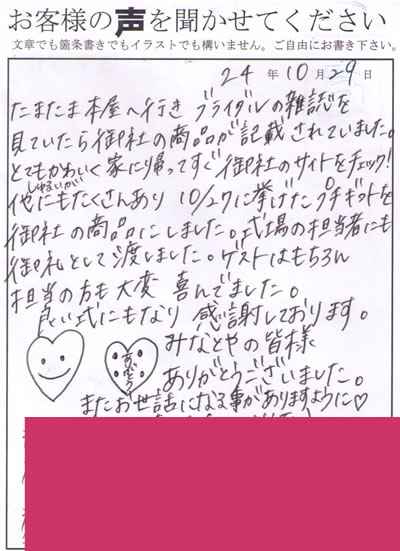 お客様の声を聞かせてください
文章でも箇条書きでもイラストでも構いません。ご自由にお書き下さい。
24年10月29日
たまたま本屋へ行き ブライダルの雑誌を
見ていたら御社の商品が記載されていました。
とてもかわいく家に帰ってすぐ御社のサイトをチェック!
しゅるいが
他にもたくさんあり 10/27に挙げたプチギフトを
御社の商品にしました。式場の担当者にも
御礼として渡しました。ゲストはもちろん
担当の方も大変 喜んでました。
良い式にもなり 感謝しております。
みなとやの皆様
ありがとうございました。
またお世話になる事がありますように♡